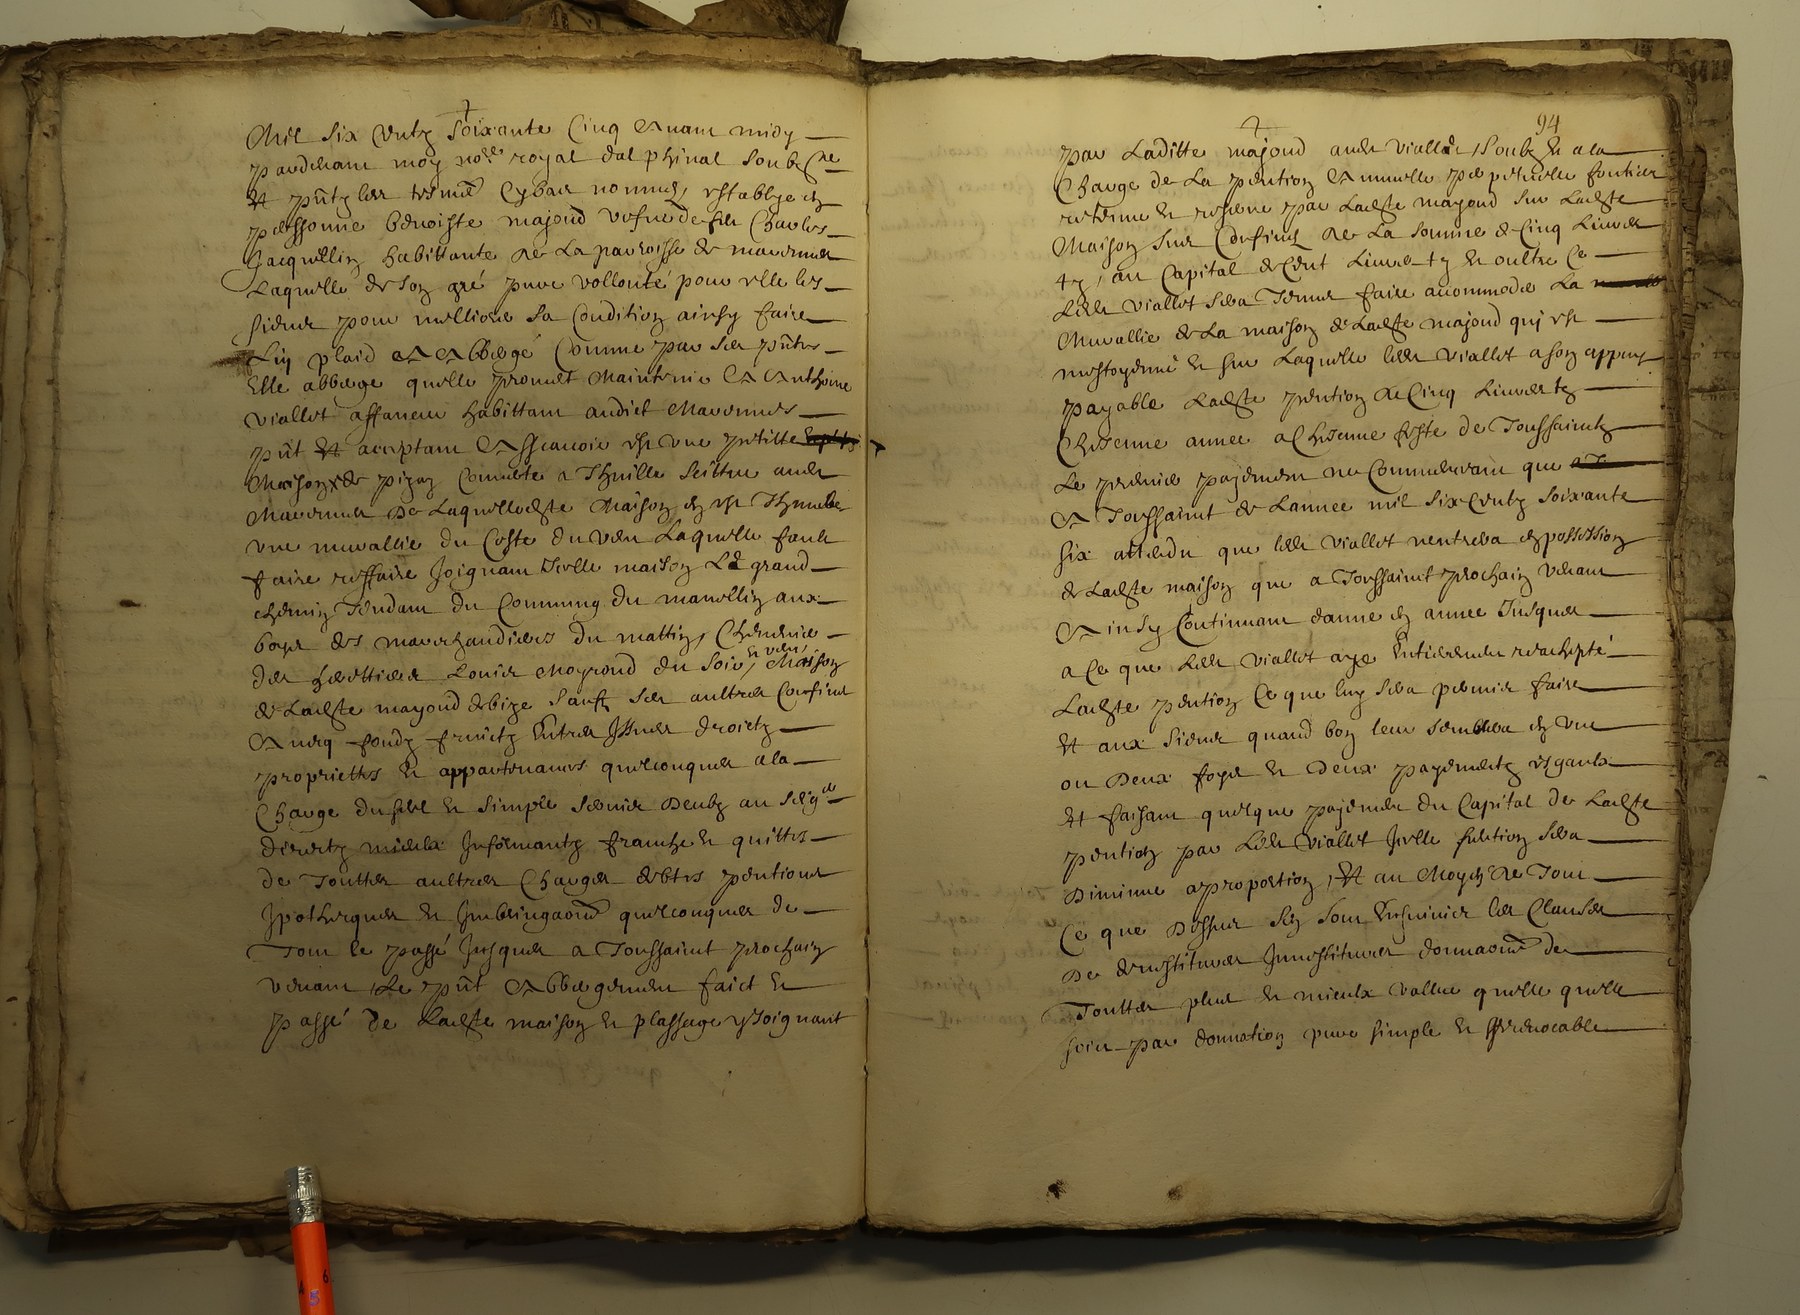 Mil six centz soixante cinq et avant midy
pardevant moy no.re royal dalphinal soubz.ne
et pntz les tesm. cy bas nommes, establye en
personne benoiste majoud vefve de feu Charles
Jacquellin habittante de la parroisse de
Laquelle de son gré pure vollonté pour elle les
siens pour melliorer sa condition ainsy faire
luy plaid a abbergé comme par ses pntes
Elle abberge quelle promet maintenir a Anthoine
viallet affaneur habittant audict
pnt et acceptant Asscavoir est une petitte
Maison de pizay couverte a Thuille scittue aud.
de laquelle ditte Maison en est
une murallie du coste du vent laquelle fault
faire reffaire Joignant icelle maison Le grand
chemin Tendant du commung du aux
boys des marchandieres du mattin,
des herittiers Louis Moyroud du soir, et vent, Maison
de ladtte mayoud de bize saufz ses aultres confins
Avecq fondz fruictz Entrees Issues droictz
propriettes et appartenances quelconques a la
Charge du selve et simple servis deubz au seig.r
directz mieulx Informantz franche et quitte
de Touttes aultres Charges debtes pentions
Ipotheques et quelconques de
Tout le passé Jusques a Toussainct prochain
venant, Le pnt Abbergement faict et
passé de ladtte maison et plassage y Joignant
94
par Laditte majoud aud. viallet, soubz et a la
Charge de la pention annuelle perpetuelle fontier
retenue et reservee par ladtte mayoud sur ladtte
Maison sus confinee de la somme de Cinq Livres
tz, au Capital de Cent Livres tz et oultre ce
Led. viallet sera Tenu faire accommoder La
Murallie de La maison de ladtte majoud qui est
mestoyenne et sur Laquelle led. viallet a son appuy
payable ladtte pention de Cinq Livres tz
Chescune annee a Chescune feste de Toussainctz
Le premier payement ne commencera que
A Toussainct de Lannee mil six Centz soixante
six attendu que led. viallet nentrera en possession
de ladtte maison que a Toussainct prochain venant
Ainsy Continuant danne en annee Jusques
a ce que Led. viallet aye Entierement rachepté
Ladtte pention Ce que luy sera permis faire
Et aux siens quand bon leur semblera en une
ou Deux foys et Deux payementz esgaulx
Et faisant quelque payement du Capital de ladtte
pention par Led. viallet Icelle pention sera
Diminue a proportion, Et au Moyen de Tout
Ce que Dessus sen sont les Clauses
De devestitures Investitures donnaon. de
Touttes plus et mieulx vallue quelle quelle
soict par donnation pure simple et Irrevocable